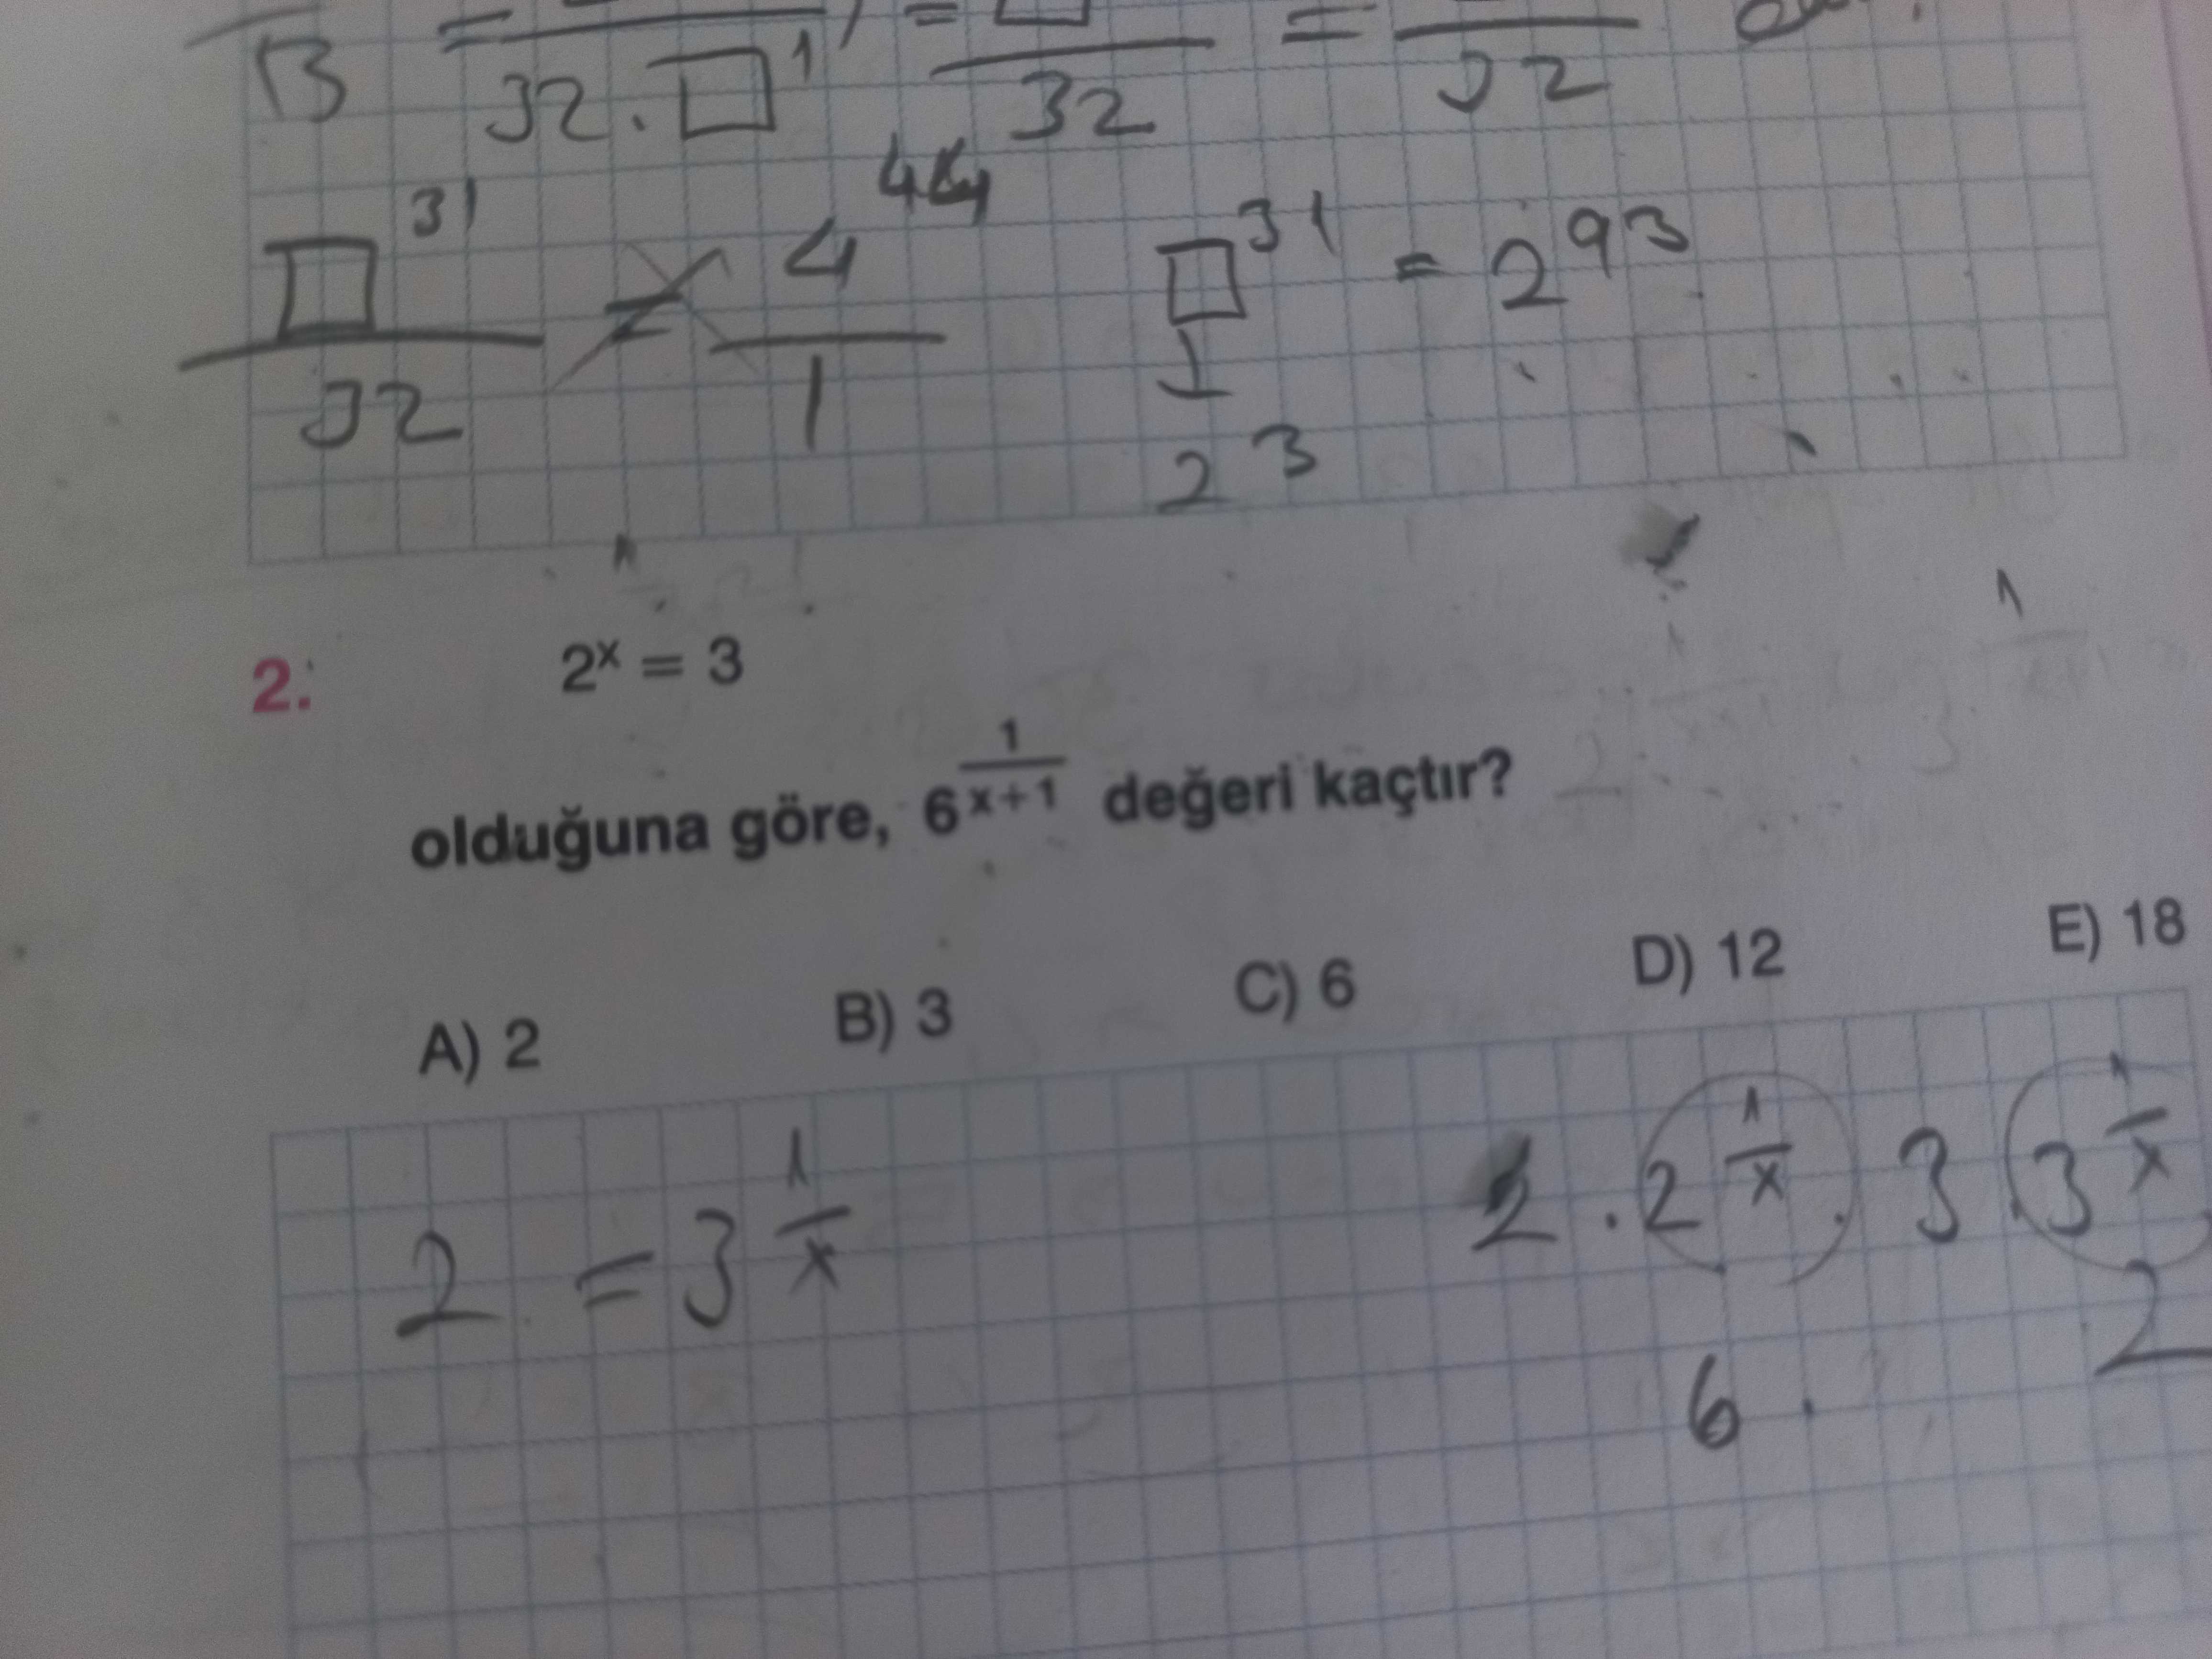 B = 32 . □¹ = □ / 32 = / 32
□³¹ / 32 = 4⁴⁴ / 1 □³¹ = 2⁹³
2³
2. 2ˣ = 3
olduğuna göre, 6^(1/(x+1)) değeri kaçtır?
A) 2 B) 3 C) 6 D) 12 E) 18
2 = 3^(1/x) 2 . 2^(1/x) . 3 . 3^(1/x)
6 . 2